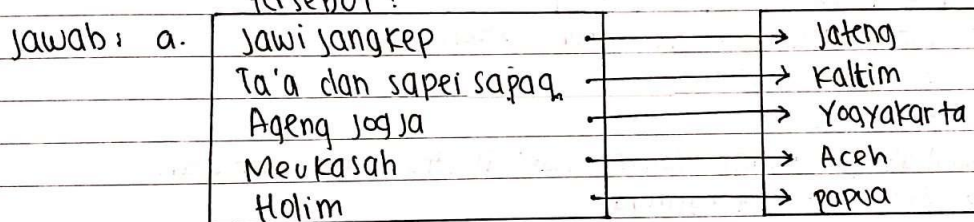 tersebut!
Jawab: a. Jawi jangkep → Jateng
Ta'a dan sapei sapaq → kaltim
Ageng jogja → Yogyakarta
Meukasah → Aceh
Holim → papua